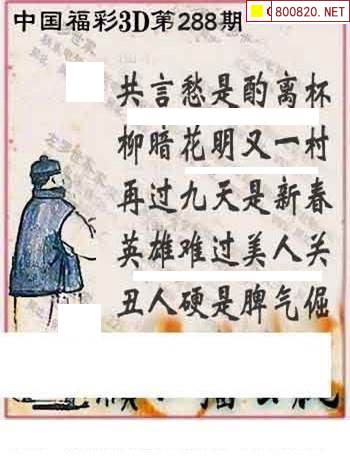 中国福彩3D第288期
800820.NET
共言愁是酌离杯
柳暗花明又一村
再过九天是新春
英雄难过美人关
丑人硬是脾气倔